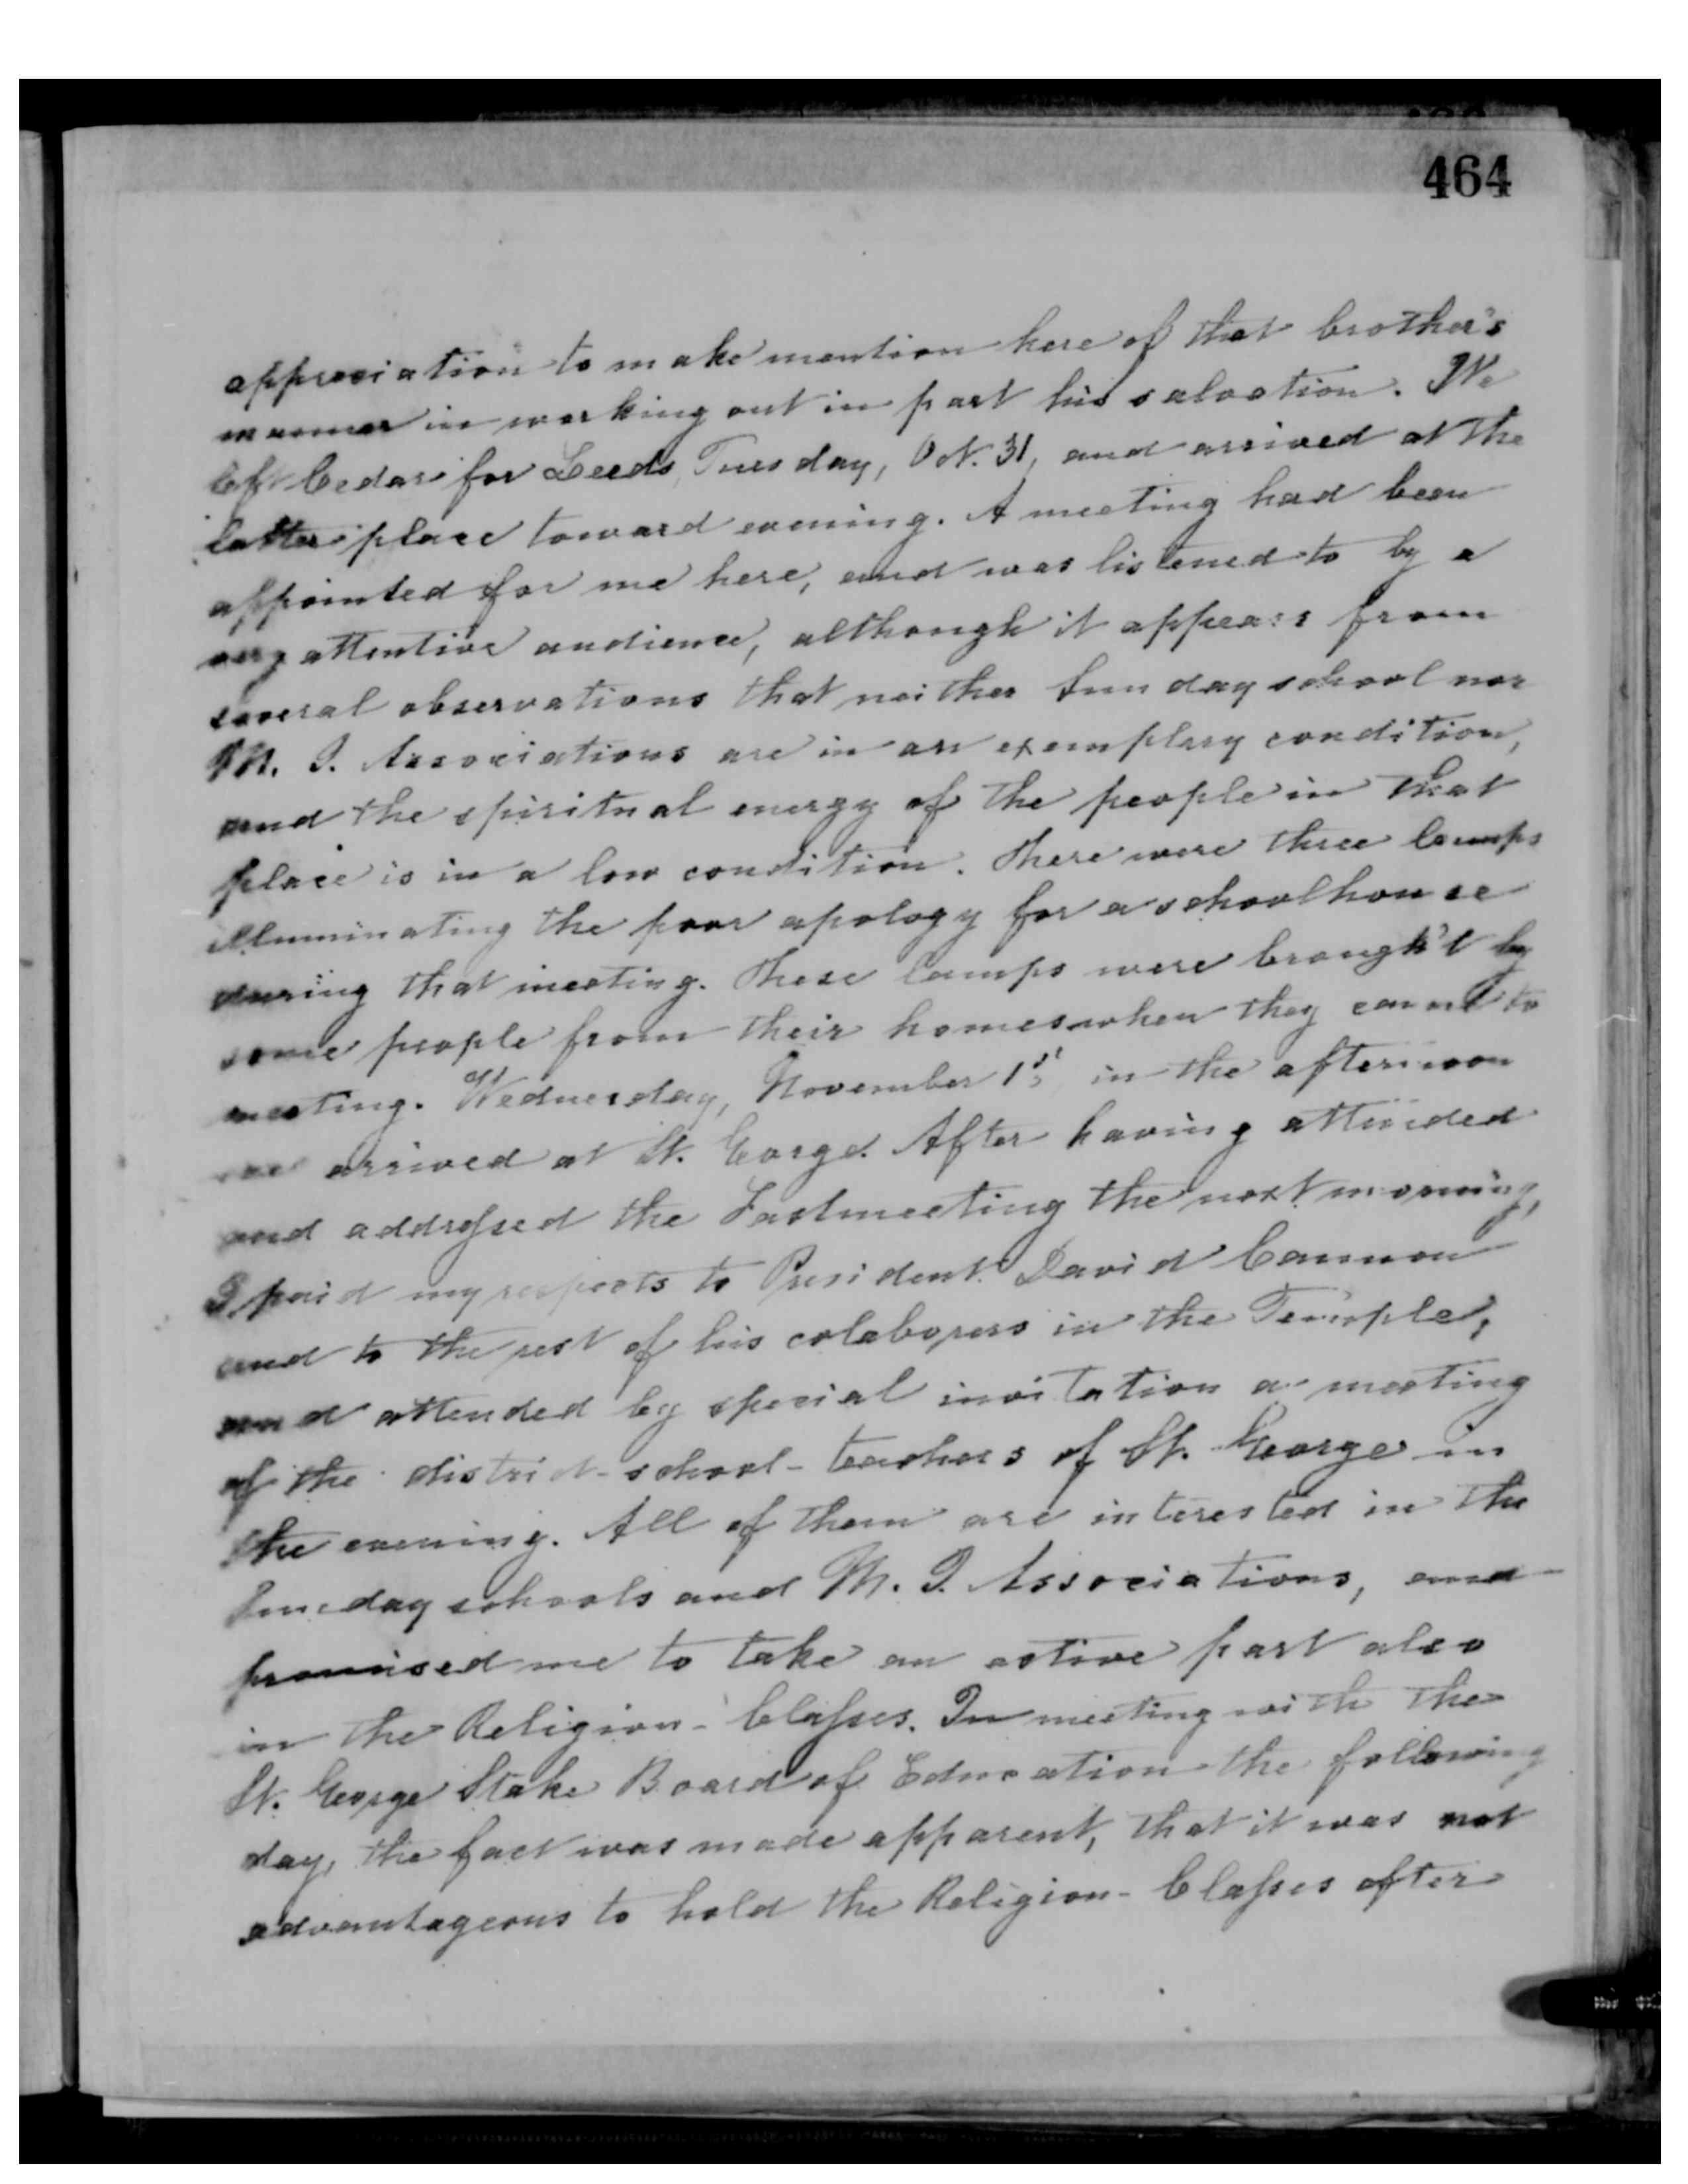 464
appreciation to make mention here of that brother's
manner in working out in part his salvation. We
left Cedar for Leeds, Tuesday, Oct. 31, and arrived at the
latter place toward evening. A meeting had been
appointed for me here, and was listened to by a
very attentive audience, although it appears from
several observations that neither Sunday school nor
M. I. Associations are in an exemplary condition,
and the spiritual energy of the people in that
place is in a low condition. There were three lamps
illuminating the poor apology for a schoolhouse
during that meeting. These lamps were brough't by
some people from their homes when they came to
meeting. Wednesday, November 1st, in the afternoon
we arrived at St. George. After having attended
and addressed the Fastmeeting the next morning,
I paid my respects to President David Cannon
and to the rest of his colaborers in the Temple,
and attended by special invitation a meeting
of the district-school-teachers of St. George in
the evening. All of them are interested in the
Sunday schools and M. I. Associations, and
promised me to take an active part also
in the Religion-Classes. In meeting with the
St. George Stake Board of Education the following
day, the fact was made apparent, that it was not
advantageous to hold the Religion-Classes after